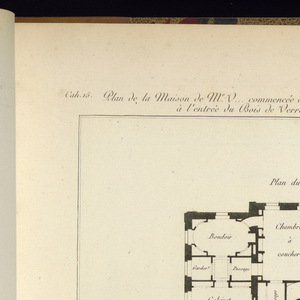 Cah. 15. Plan de la Maison de Mr. V... commencée
à l'entrée du Bois de Verr
Plan du
Boudoir
Chambr
à
coucher
Garder.
Passage
Cabinet